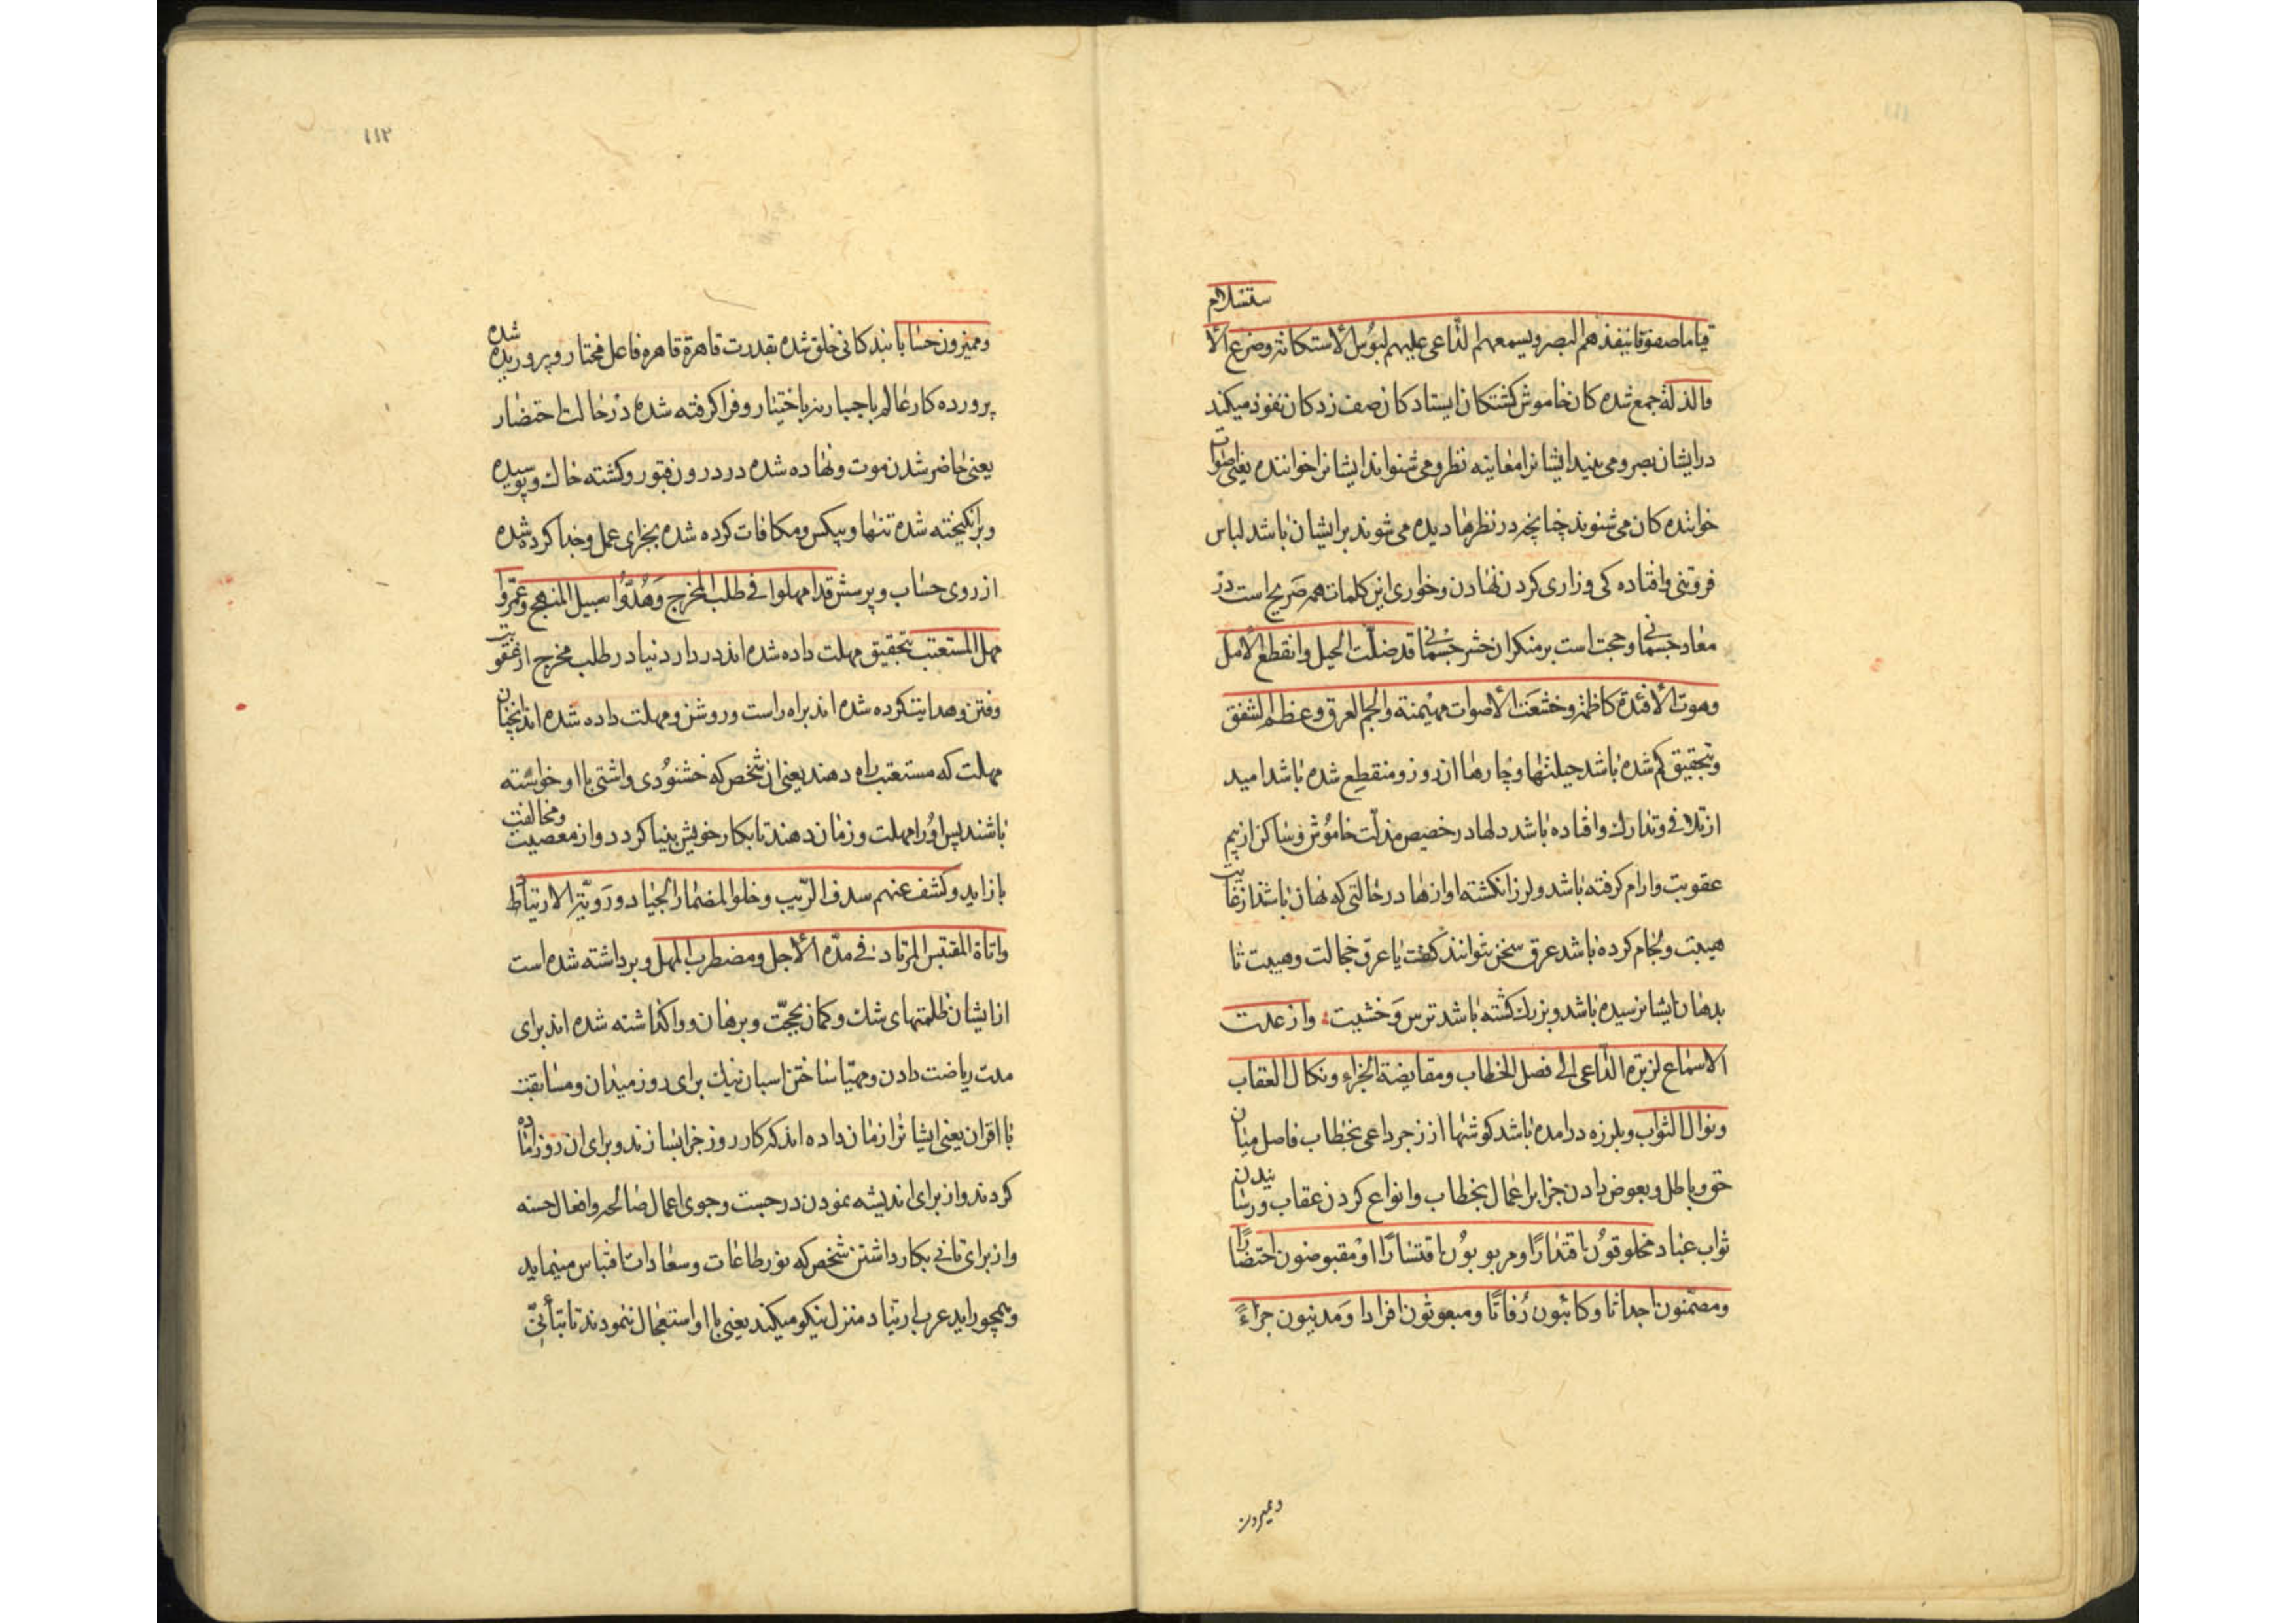 ستسلام
قیاما صفوفا ینفذهم البصر و یسمعهم الداعی علیهم لبوس الاستکانة و ضرع الا
والذلة جمع شده کان خاموش کشتکان ایستادکان صف زدکان نفوذ میکند
در ایشان بصر و می بیند ایشانرا معاینه نظر و می شنواند ایشانرا خواننده یعنی صوات
خواننده کان می شنوند چنانچه در نظرها دیده می شوند بر ایشان باشد لباس
فروتنی و افتاده کی و زاری کردن نهادن و خواری این کلمات همه صریح است در
معاد جسمانی و حجت است بر منکران حشر جسمانی قد ضلّت الحیل و انقطع الامل
و هوت الافئدة کاظمة و خشعت الاصوات مهیمنة و الجم العرق و عظم الشفق
و بتحقیق کم شده باشد حیلتها و چارها ان روز و منقطع شده باشد امید
از تلافی و تدارک و افتاده باشد دلها در حضیض مذلّت خاموش و ساکن از بیم
عقوبت و ارام کرفته باشد و لرزان کشته اوازها در حالتی که نهان باشد از غایت
هیبت و لجام کرده باشد عرق سخن نتوانند کفت یا عرق خجالت و هیبت تا
بدهان ایشان رسیده باشد و بزرک کشته باشد ترس و خشیت و ارعدت
الاسماع لزبرة الداعی الی فصل الخطاب و مقایضة الجزاء و نکال العقاب
و نوال الثواب و بلرزه درامده باشد کوشها از زجر داعی بخطاب فاصل میان
حق و باطل و بعوض دادن جزا بر اعمال بخطاب و انواع کردن عقاب و رسانیدن
ثواب عباد مخلوقون اقتدارًا و مربوبون اقتسارًا و مقبوضون احتضارًا
و مضمّنون اجداثا و کائنون رُفاتًا و مبعوثون افرادا وَ مدینون جزاءً
و ممیزون
١١٢
و ممیزون حسابا بندکانی خلق شده بقدرت قاهرة قاهره فاعل مختار و پروریده شده
پرورده کار عالم باجبار نه باختیار و فرا کرفته شده در حالت احتضار
یعنی حاضر شدن موت و نهاده شده در درون قبور و کشته خاک و پوسیده
و برانکیخته شده تنها و بیکس و مکافات کرده شده بجزای عمل و جدا کرده شده
از روی حساب و پرسش قد امهلوا فی طلب المخرج وَ هُدُوا سبیل المنهج و عمّروا
مهل المستعتب بتحقیق مهلت داده شده اند در دار دنیا در طلب مخرج از عقوبت
و فتن و هدایت کرده شده اند براه راست و روشن و مهلت داده شده اند انچنان
مهلت که مستعتب راه دهند یعنی ان شخص که خشنودی و اشتی با او خواسته
باشند پس او را مهلت و زمان دهند تا بکار خویش بینا کردد و از معصیت و مخالفت
باز اید و کشف عنهم سدف الرّیب و خلوا لمضمار الجیاد و رَویّة الارتیاد
و اناة المقتبس المرتاد فی مدّة الاجل و مضطرب المهل و برداشته شده است
از ایشان ظلمتهای شک و کمان بحجّت و برهان و واکذاشته شده اند برای
مدت ریاضت دادن و مهیّا ساختن اسبان نیک برای روز میدان و مسابقت
با اقران یعنی ایشانرا زمان داده اند که کار روز جزا بسازند و برای ان روز اماده
کردند و از برای اندیشه نمودن در جست و جوی اعمال صالحه و افعال حسنه
و از برای تانی بکار داشتن شخص که نور طاعات و سعادات اقتباس مینماید
و همچو راید عرب ارتیاد منزل نیکو میکند یعنی با او استعجال ننمودند تا بتأنّی